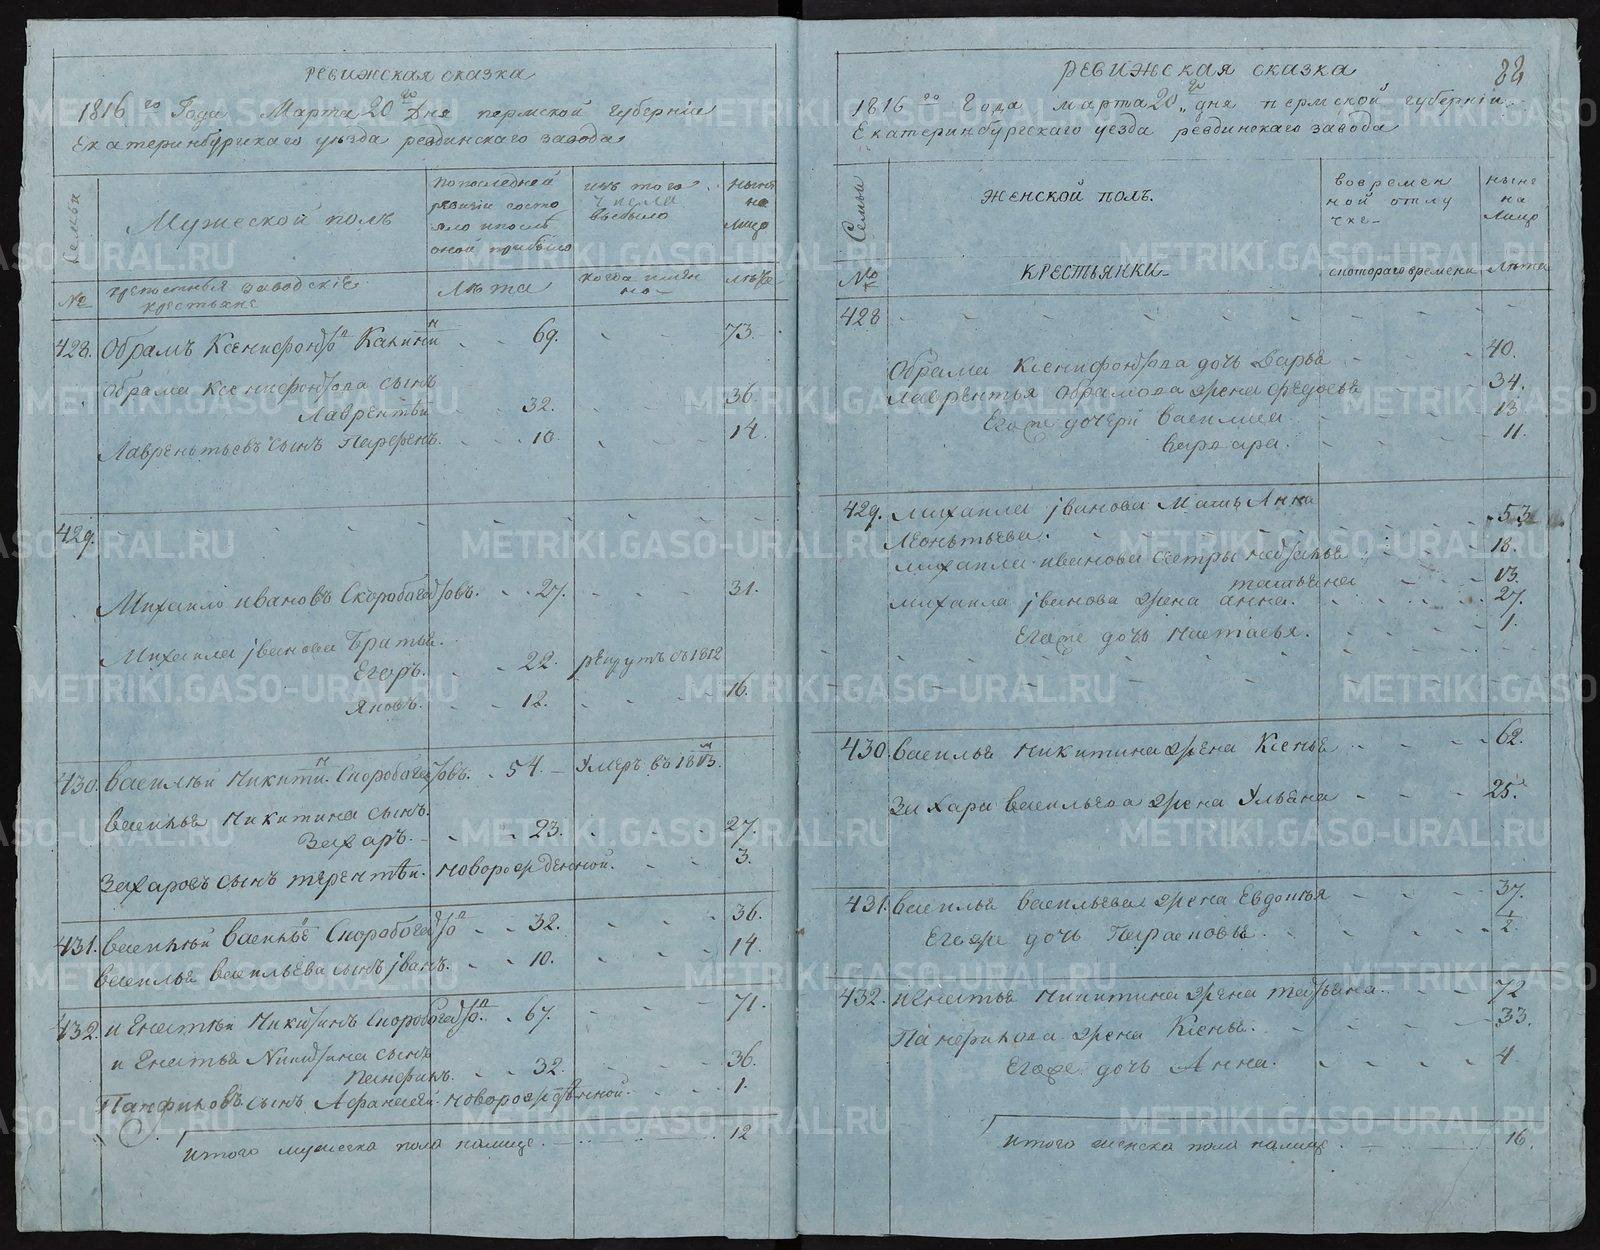 РЕВИЖСКАЯ СКАЗКА
1816 го Года Марта 20 го Дня пермской губернiи
Екатеринбургскаго уезда ревдинскаго завода
Семьи
Мужеской полъ
попоследней
ревизiи состо
яло ипосль
оной прибыло
изъ того
числа
выбыло
ныне
на
лицо
№
крепостныя заводскiе
крестьяне
Лѣта
когда имян
но
лѣта
428. Обрамъ Ксенифонто в 69. 73.
Обрама Ксенифонтова сынъ
Лаврентѣй 32. 36.
Лавреньтьевъ сынъ Парфенъ. 10. 14.
429.
Михаило ивановъ Скоробогатовъ. 27. 31.
Михаила iванова Братья.
Егоръ. 22. рекрутъ съ 1812
Яковъ. 12. 16.
430. Василѣй Никитин Скоробогатовъ. 54. Умеръ въ 1813.
Василья Никитина сынъ.
Захаръ. 23. 27.
Захаровъ сынъ терентѣи. новорожденной. 3.
431. Василѣй Васильев Скоробогато в 32. 36.
Василья Васильева сынъ iванъ. 10. 14.
432. игнатѣй Никитинъ Скоробогато в 67. 71.
игнатья Никитина сынъ
Панфилъ. 32. 36.
Панфиловъ сынъ Афанасей. новорождѣнной. 1.
итого мужеска пола налице. 12
РЕВИЖСКАЯ СКАЗКА
1816 го Года марта 20 го дня пермской губернiи
Екатеринбургскаго уезда ревдинскаго завода
Семьи
ЖЕНСКОЙ ПОЛЪ.
вовремен
ной отлу
чке
ныне
на
Лицо
№
КРЕСТЬЯНКИ
скотораго времени
Лѣта
428
Обрама Ксенифонтова дочь Дарья 40.
Лаврентья Обрамова жена федосья 34.
Егоже дочери Василиса 13.
Варвара. 11.
429. Михаила iванова Мать Анна
Леоньтьева. 53
Михаила иванова сестры наталья 18.
татьяна 13.
Михаила iванова жена анна. 27.
Егоже дочь настасья. 1.
430. Василья Никитина жена Ксенья 62.
Захара Васильева жена Ульяна 25.
431. Василья Васильева жена Евдокья 37.
Егоже дочь Парасковья 1/2.
432. игнатья Никитина жена татьяна. 72
Панфилова жена Ксенья. 33.
Егоже дочь Анна. 4.
итого женска пола налице. 16.
METRIKI.GASO-URAL.RU